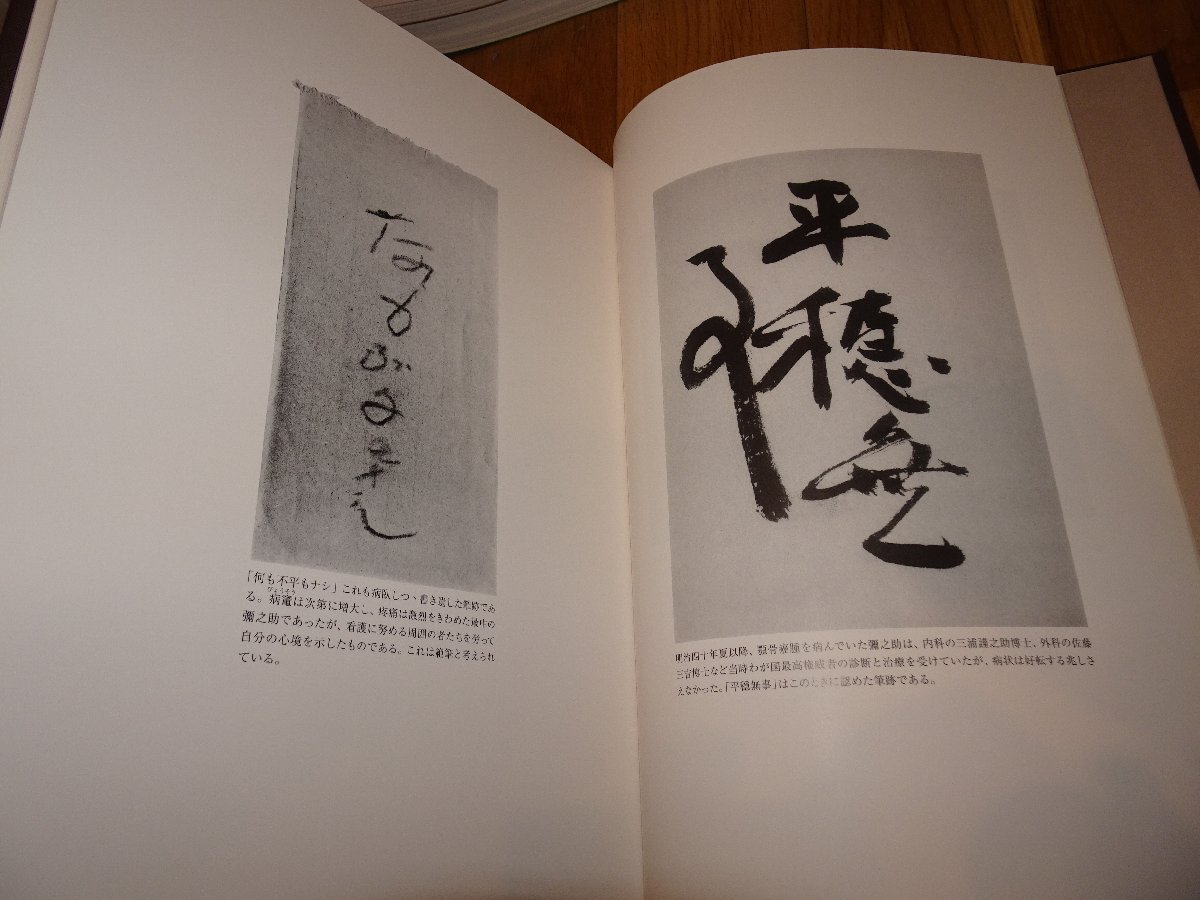 なにも
ふへ
「何も不平もナシ」これも病臥しつゝ書き遺した筆跡であ
る。病竈は次第に増大し、疼痛は激烈をきわめた最中の
びょうそう
彌之助であったが、看護に努める周囲の者たちを労って
自分の心境を示したものである。これは絶筆と考えられ
ている。
平穏無
事
明治四十年夏以降、顎骨癌腫を病んでいた彌之助は、内科の三浦謹之助博士、外科の佐藤
三吉博士など当時わが国最高権威者の診断と治療を受けていたが、病状は好転する兆しさ
えなかった。「平穏無事」はこのときに認めた筆跡である。